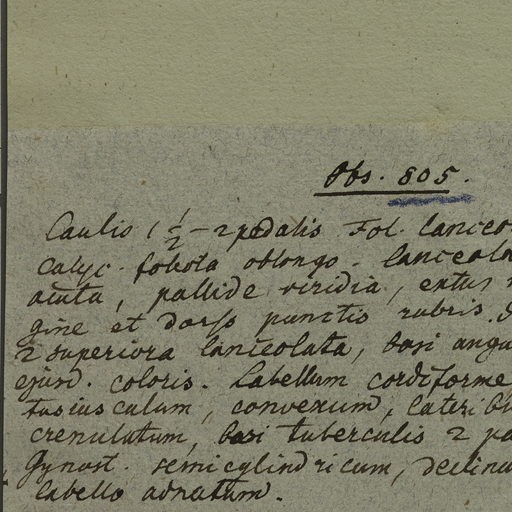 Obs. 805.
Caulis 1 1/2 - 2 pedalis. Fol. lanceo
Calyc. foliola oblongo - lanceola
acuta, pallide viridia, extus
gine et dorso punctis rubris.
2 superiora lanceolata, basi angu
ejusd. coloris. Labellum cordiforme
tusiusculum, convexum, lateribu
crenulatum, basi tuberculis 2 pa
Gynost. semicylindricum, declina
labello adnatum.